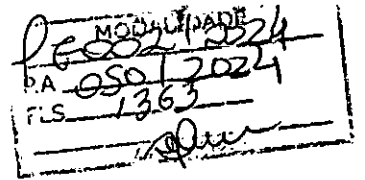 MODALIDADE
PE 002/2024
P.A 050/2024
FLS 1363